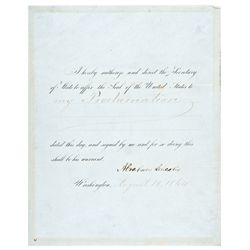 I hereby authorize and direct the Secretary
of State to affix the Seal of the United States to
my Proclamation
dated this day, and signed by me and for so doing this
shall be his warrant.
Abraham Lincoln
Washington, August 18, 1864